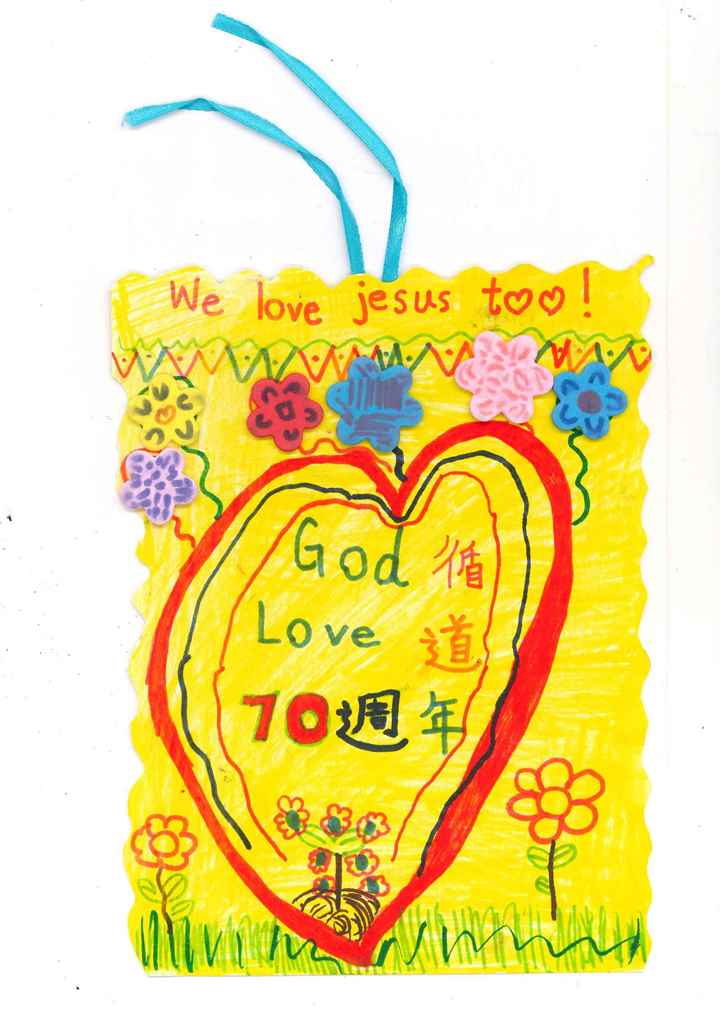 We love jesus too!
God 循
Love 道
70週年